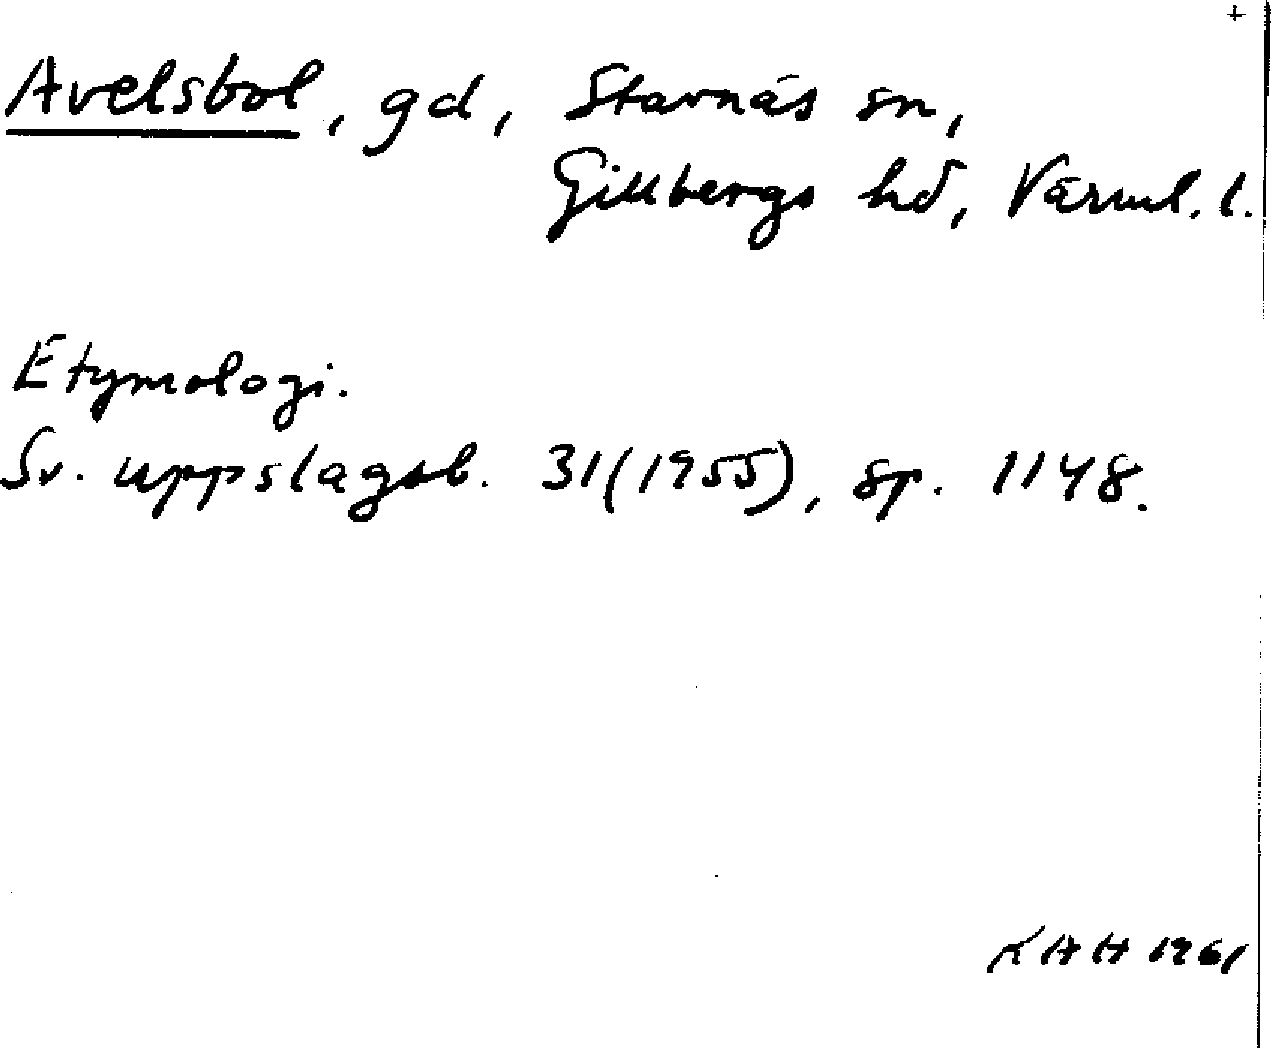 +
Avelsbol, gd, Stavnäs sn,
Gillbergs hd, Värml. l.
Etymologi.
Sv. uppslagsb. 31(1955), sp. 1148.
KAH 1961